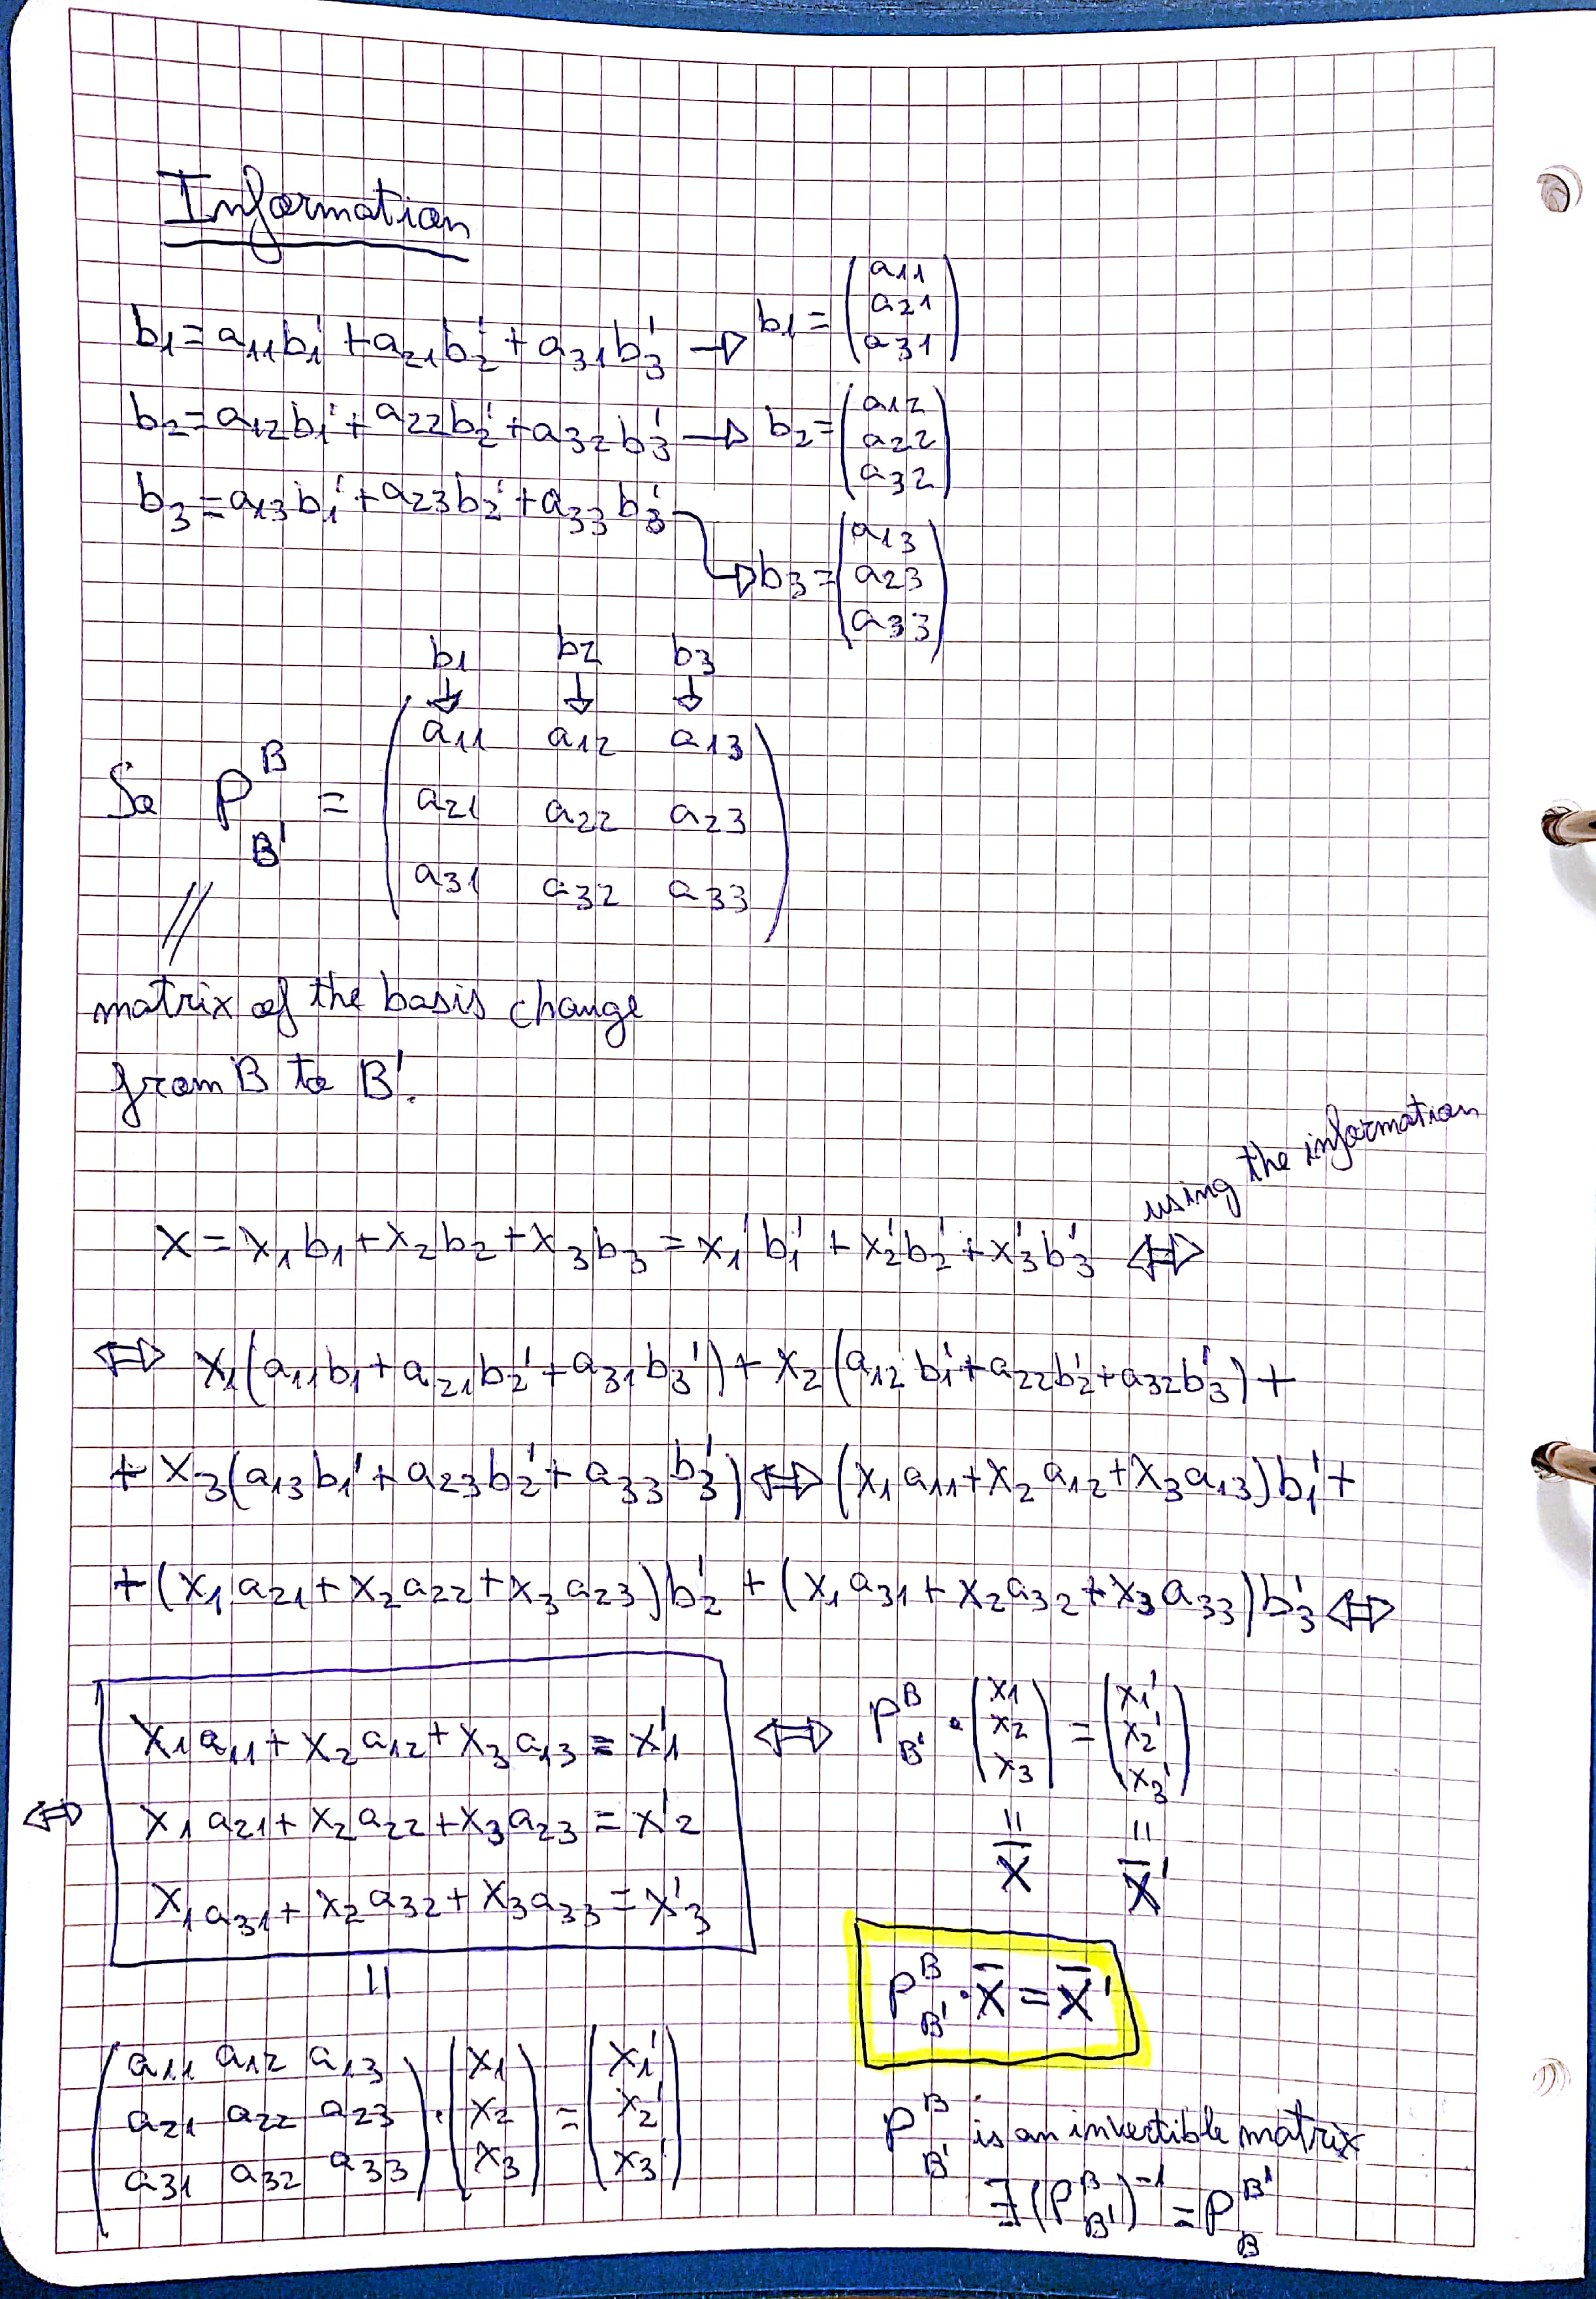 Information
b₁ = a₁₁b₁' + a₂₁b₂' + a₃₁b₃' → b₁ = (a₁₁ a₂₁ a₃₁)
b₂ = a₁₂b₁' + a₂₂b₂' + a₃₂b₃' → b₂ = (a₁₂ a₂₂ a₃₂)
b₃ = a₁₃b₁' + a₂₃b₂' + a₃₃b₃' → b₃ = (a₁₃ a₂₃ a₃₃)
b₁ b₂ b₃
↓ ↓ ↓
a₁₁ a₁₂ a₁₃
So P^B_B' = a₂₁ a₂₂ a₂₃
a₃₁ a₃₂ a₃₃
//
matrix of the basis change
from B to B'.
using the information
x = x₁b₁ + x₂b₂ + x₃b₃ = x₁'b₁' + x₂'b₂' + x₃'b₃' ⇔
⇔ x₁(a₁₁b₁ + a₂₁b₂' + a₃₁b₃') + x₂(a₁₂b₁' + a₂₂b₂' + a₃₂b₃') +
+ x₃(a₁₃b₁' + a₂₃b₂' + a₃₃b₃') ⇔ (x₁a₁₁ + x₂a₁₂ + x₃a₁₃)b₁' +
+ (x₁a₂₁ + x₂a₂₂ + x₃a₂₃)b₂' + (x₁a₃₁ + x₂a₃₂ + x₃a₃₃)b₃' ⇔
x₁a₁₁ + x₂a₁₂ + x₃a₁₃ = x'₁ ⇔ P^B_B' · (x₁ x₂ x₃) = (x₁' x₂' x₃')
⇔ x₁a₂₁ + x₂a₂₂ + x₃a₂₃ = x'₂
x₁a₃₁ + x₂a₃₂ + x₃a₃₃ = x'₃
= =
x̄ x̄'
=
P^B_B' · x̄ = x̄'
a₁₁ a₁₂ a₁₃ x₁ x₁'
a₂₁ a₂₂ a₂₃ · x₂ = x₂'
a₃₁ a₃₂ a₃₃ x₃ x₃'
P^B_B' is an invertible matrix
∃ (P^B_B')⁻¹ = P^B'_B